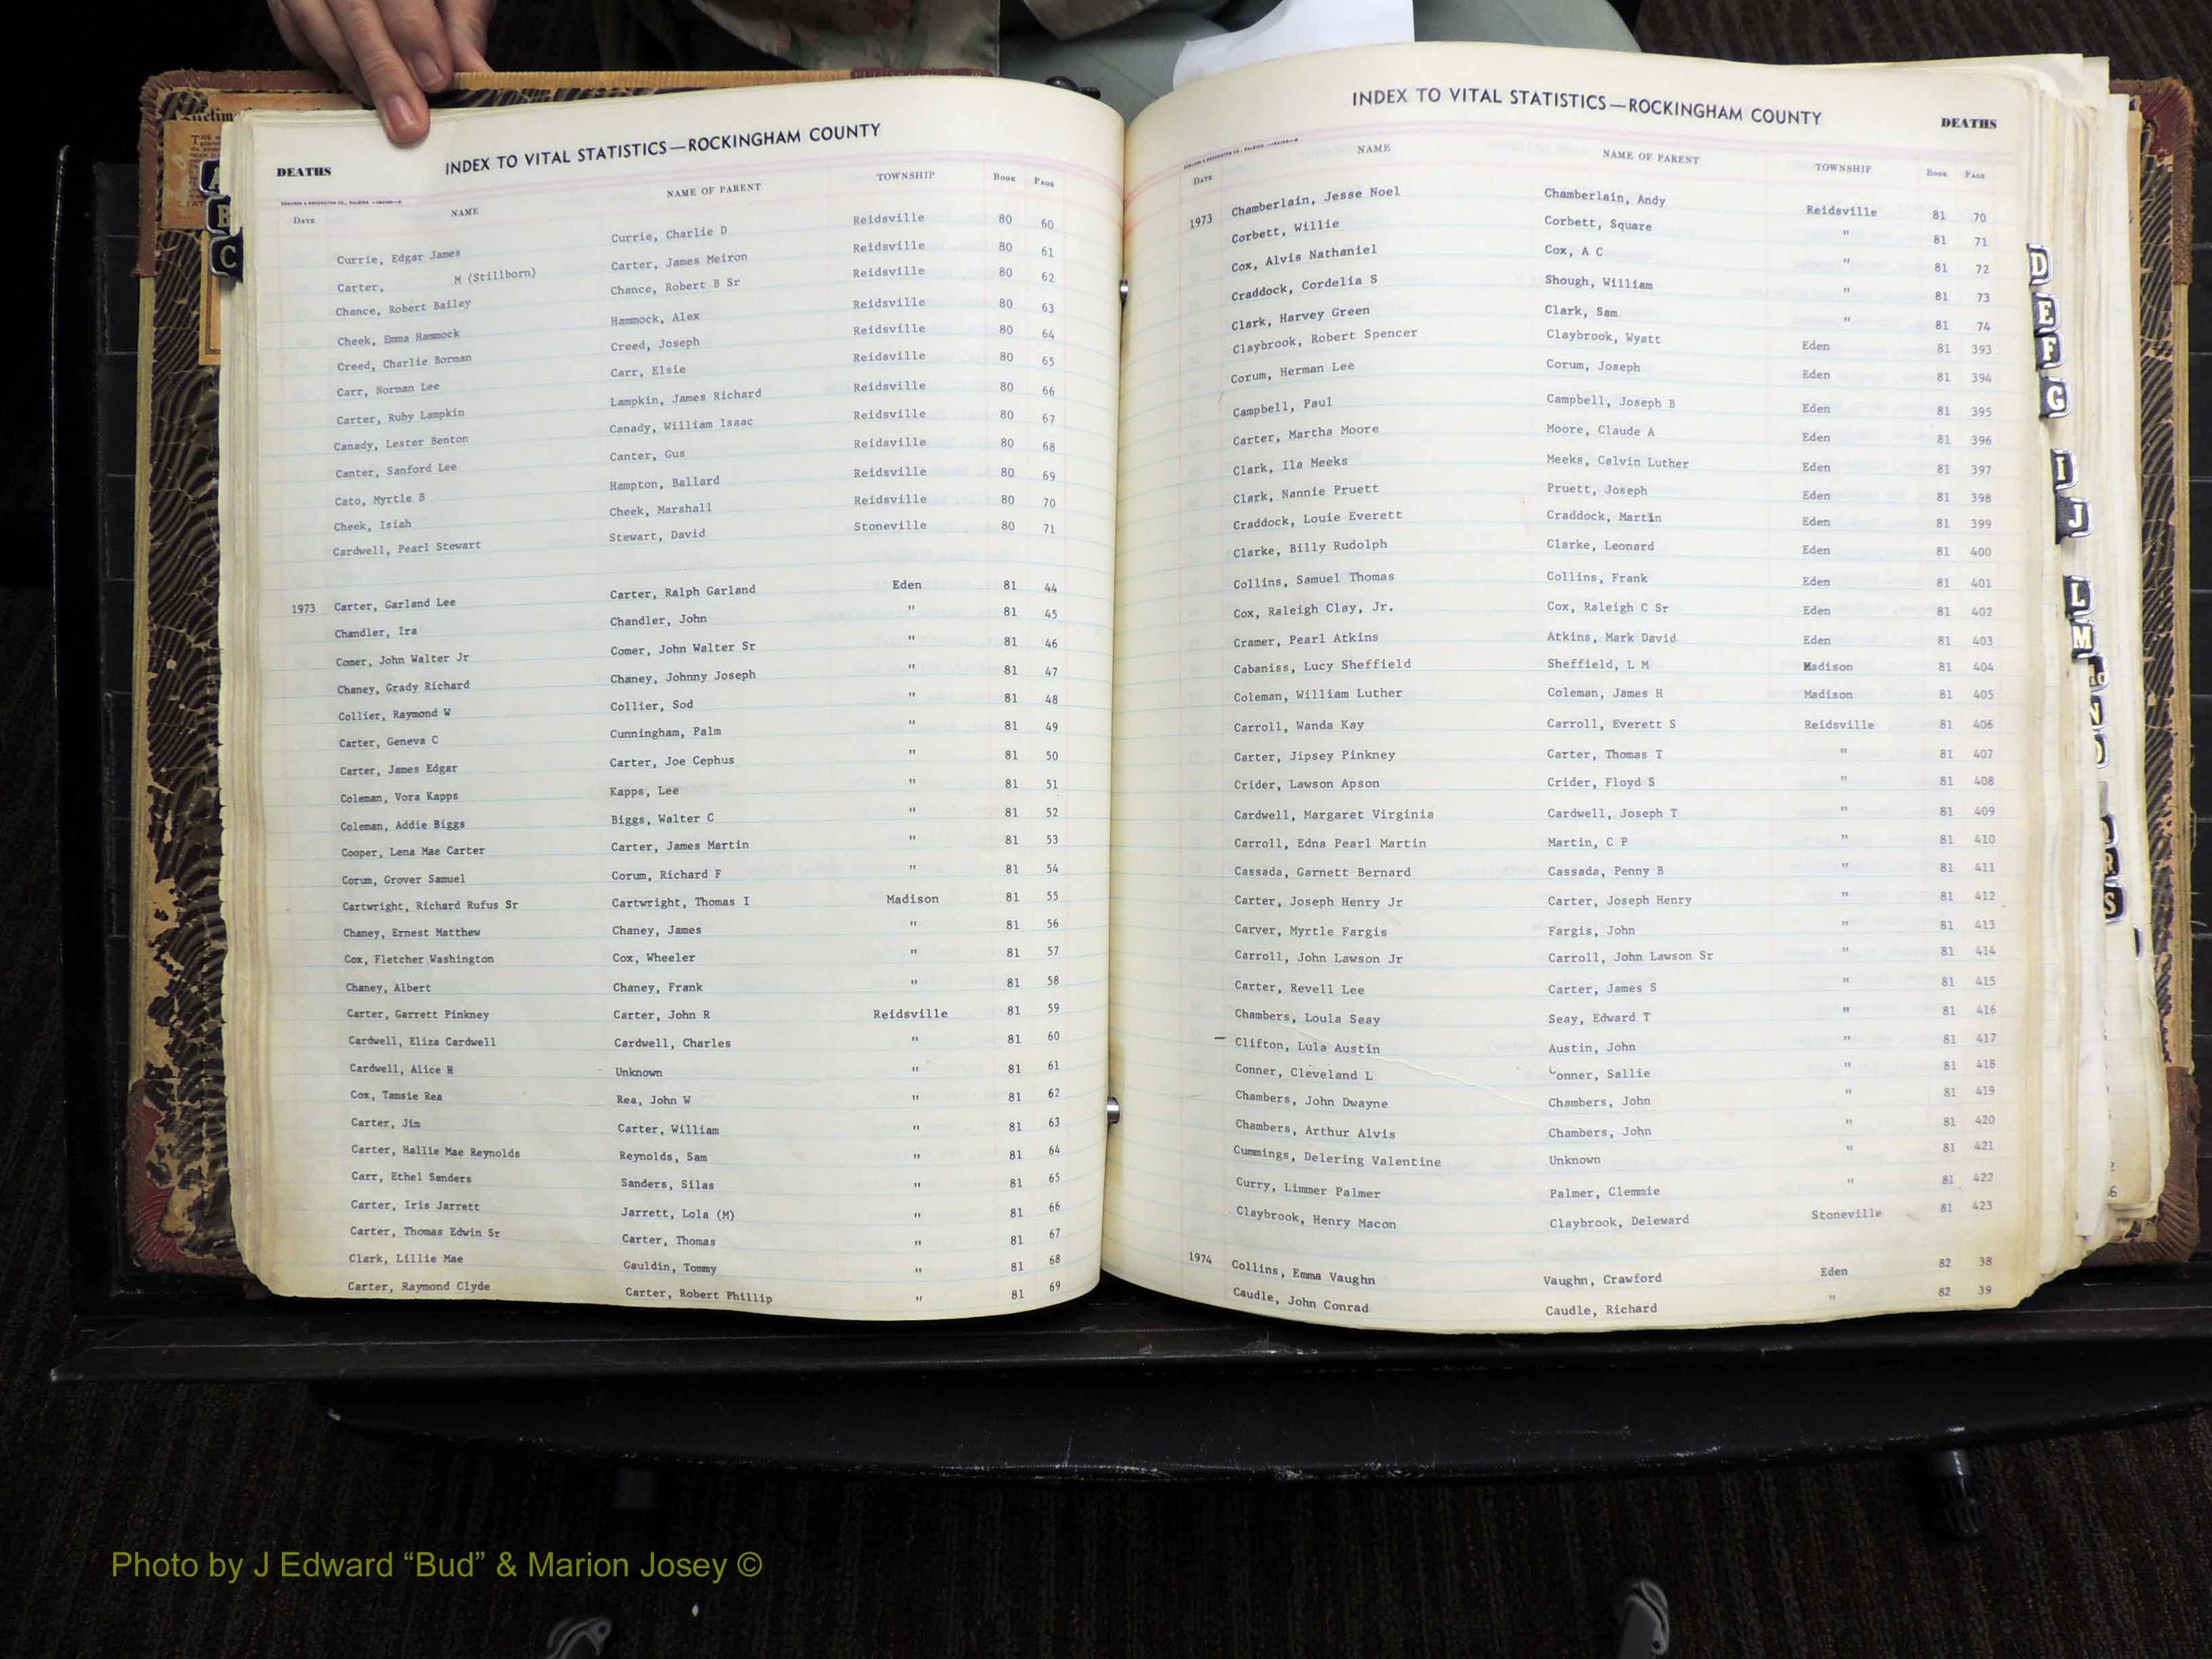 INDEX TO VITAL STATISTICS—ROCKINGHAM COUNTY
DEATHS
DATE NAME NAME OF PARENT TOWNSHIP BOOK PAGE
Currie, Edgar James Currie, Charlie D Reidsville 80 60
Carter, M (Stillborn) Carter, James Meiron Reidsville 80 61
Chance, Robert Bailey Chance, Robert B Sr Reidsville 80 62
Cheek, Emma Hammock Hammock, Alex Reidsville 80 63
Creed, Charlie Borman Creed, Joseph Reidsville 80 64
Carr, Norman Lee Carr, Elsie Reidsville 80 65
Carter, Ruby Lampkin Lampkin, James Richard Reidsville 80 66
Canady, Lester Benton Canady, William Isaac Reidsville 80 67
Canter, Sanford Lee Canter, Gus Reidsville 80 68
Cato, Myrtle B Hampton, Ballard Reidsville 80 69
Cheek, Isiah Cheek, Marshall Reidsville 80 70
Cardwell, Pearl Stewart Stewart, David Stoneville 80 71
1973 Carter, Garland Lee Carter, Ralph Garland Eden 81 44
Chandler, Ira Chandler, John " 81 45
Comer, John Walter Jr Comer, John Walter Sr " 81 46
Chaney, Grady Richard Chaney, Johnny Joseph " 81 47
Collier, Raymond W Collier, Sod " 81 48
Carter, Geneva C Cunningham, Palm " 81 49
Carter, James Edgar Carter, Joe Cephus " 81 50
Coleman, Vora Kapps Kapps, Lee " 81 51
Coleman, Addie Biggs Biggs, Walter C " 81 52
Cooper, Lena Mae Carter Carter, James Martin " 81 53
Corum, Grover Samuel Corum, Richard F " 81 54
Cartwright, Richard Rufus Sr Cartwright, Thomas I Madison 81 55
Chaney, Ernest Matthew Chaney, James " 81 56
Cox, Fletcher Washington Cox, Wheeler " 81 57
Chaney, Albert Chaney, Frank " 81 58
Carter, Garrett Pinkney Carter, John R Reidsville 81 59
Cardwell, Eliza Cardwell Cardwell, Charles " 81 60
Cardwell, Alice H Unknown " 81 61
Cox, Tamsie Rea Rea, John W " 81 62
Carter, Jim Carter, William " 81 63
Carter, Hallie Mae Reynolds Reynolds, Sam " 81 64
Carr, Ethel Sanders Sanders, Silas " 81 65
Carter, Iris Jarrett Jarrett, Lola (M) " 81 66
Carter, Thomas Edwin Sr Carter, Thomas " 81 67
Clark, Lillie Mae Gauldin, Tommy " 81 68
Carter, Raymond Clyde Carter, Robert Phillip " 81 69
A
B
C
INDEX TO VITAL STATISTICS—ROCKINGHAM COUNTY
DEATHS
DATE NAME NAME OF PARENT TOWNSHIP BOOK PAGE
1973 Chamberlain, Jesse Noel Chamberlain, Andy Reidsville 81 70
Corbett, Willie Corbett, Square " 81 71
Cox, Alvis Nathaniel Cox, A C " 81 72
Craddock, Cordelia S Shough, William " 81 73
Clark, Harvey Green Clark, Sam " 81 74
Claybrook, Robert Spencer Claybrook, Wyatt Eden 81 393
Corum, Herman Lee Corum, Joseph Eden 81 394
Campbell, Paul Campbell, Joseph B Eden 81 395
Carter, Martha Moore Moore, Claude A Eden 81 396
Clark, Ila Meeks Meeks, Calvin Luther Eden 81 397
Clark, Nannie Pruett Pruett, Joseph Eden 81 398
Craddock, Louie Everett Craddock, Martin Eden 81 399
Clarke, Billy Rudolph Clarke, Leonard Eden 81 400
Collins, Samuel Thomas Collins, Frank Eden 81 401
Cox, Raleigh Clay, Jr. Cox, Raleigh C Sr Eden 81 402
Cramer, Pearl Atkins Atkins, Mark David Eden 81 403
Cabaniss, Lucy Sheffield Sheffield, L M Madison 81 404
Coleman, William Luther Coleman, James H Madison 81 405
Carroll, Wanda Kay Carroll, Everett S Reidsville 81 406
Carter, Jipsey Pinkney Carter, Thomas T " 81 407
Crider, Lawson Apson Crider, Floyd S " 81 408
Cardwell, Margaret Virginia Cardwell, Joseph T " 81 409
Carroll, Edna Pearl Martin Martin, C P " 81 410
Cassada, Garnett Bernard Cassada, Penny B " 81 411
Carter, Joseph Henry Jr Carter, Joseph Henry " 81 412
Carver, Myrtle Fargis Fargis, John " 81 413
Carroll, John Lawson Jr Carroll, John Lawson Sr " 81 414
Carter, Revell Lee Carter, James S " 81 415
Chambers, Loula Seay Seay, Edward T " 81 416
Clifton, Lula Austin Austin, John " 81 417
Conner, Cleveland L Conner, Sallie " 81 418
Chambers, John Dwayne Chambers, John " 81 419
Chambers, Arthur Alvis Chambers, John " 81 420
Cummings, Delering Valentine Unknown " 81 421
Curry, Limmer Palmer Palmer, Clemmie " 81 422
Claybrook, Henry Macon Claybrook, Deleward Stoneville 81 423
1974 Collins, Emma Vaughn Vaughn, Crawford Eden 82 38
Caudle, John Conrad Caudle, Richard " 82 39
D
E
F
G
I
J
L
M
N
R
S
Photo by J Edward “Bud” & Marion Josey ©